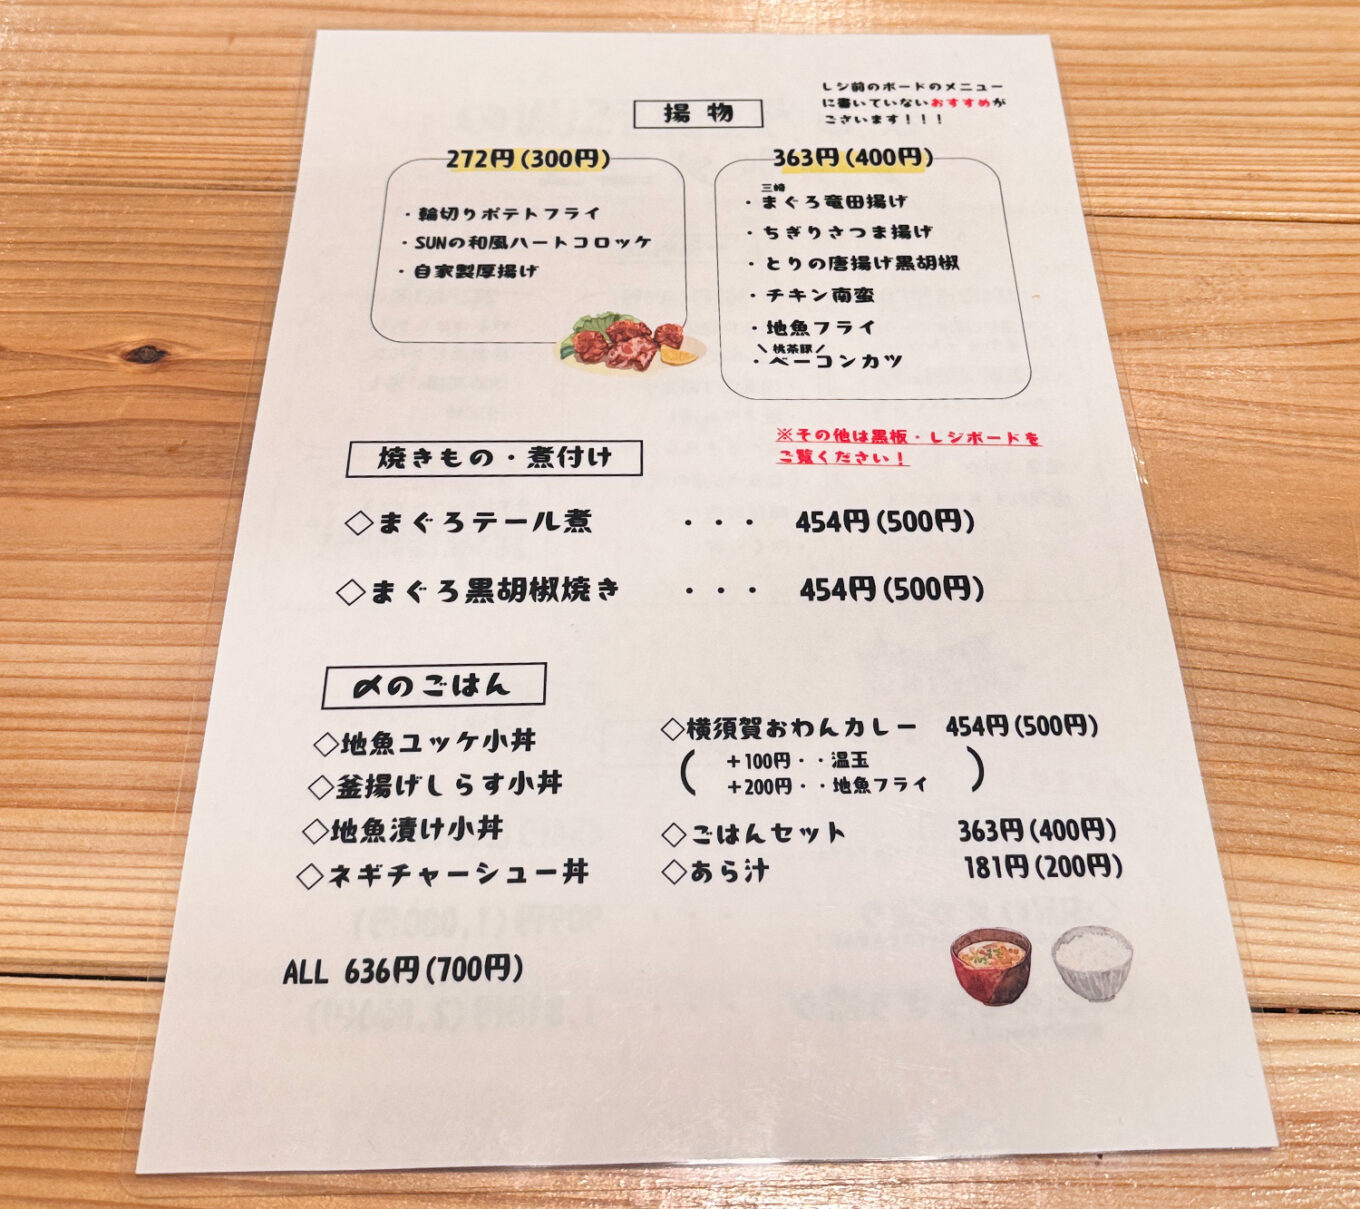 揚 物
レジ前のボードのメニュー
に書いていないおすすめが
ございます！！！
272円(300円)
・輪切りポテトフライ
・SUNの和風ハートコロッケ
・自家製厚揚げ
363円(400円)
三崎
・まぐろ竜田揚げ
・ちぎりさつま揚げ
・とりの唐揚げ黒胡椒
・チキン南蛮
・地魚フライ
＼桃茶豚／
・ベーコンカツ
※その他は黒板・レジボードを
ご覧ください！
焼きもの・煮付け
◇まぐろテール煮 ・・・ 454円(500円)
◇まぐろ黒胡椒焼き ・・・ 454円(500円)
〆のごはん
◇地魚ユッケ小丼
◇釜揚げしらす小丼
◇地魚漬け小丼
◇ネギチャーシュー丼
ALL 636円(700円)
◇横須賀おわんカレー 454円(500円)
(＋100円・・温玉
＋200円・・地魚フライ)
◇ごはんセット 363円(400円)
◇あら汁 181円(200円)